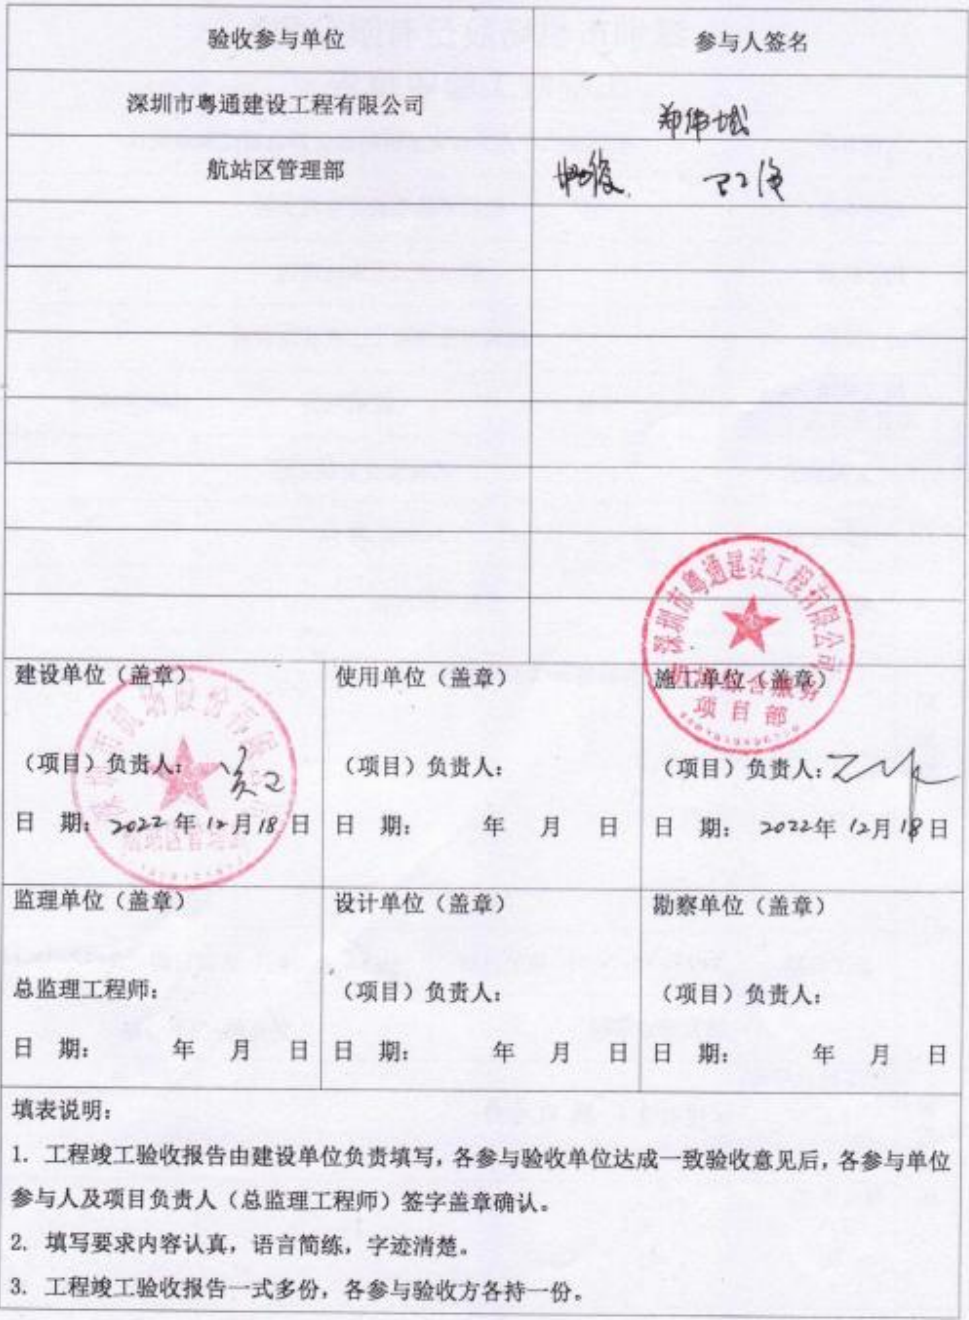 验收参与单位 参与人签名
深圳市粤通建设工程有限公司 郑伟城
航站区管理部
深圳市粤通建设工程有限公司
项目部
建设单位（盖章） 使用单位（盖章） 施工单位（盖章）
（项目）负责人： （项目）负责人： （项目）负责人：
日 期：2022年12月18日 日 期： 年 月 日 日 期：2022年12月18日
监理单位（盖章） 设计单位（盖章） 勘察单位（盖章）
总监理工程师： （项目）负责人： （项目）负责人：
日 期： 年 月 日 日 期： 年 月 日 日 期： 年 月 日
填表说明：
1. 工程竣工验收报告由建设单位负责填写，各参与验收单位达成一致验收意见后，各参与单位
参与人及项目负责人（总监理工程师）签字盖章确认。
2. 填写要求内容认真，语言简练，字迹清楚。
3. 工程竣工验收报告一式多份，各参与验收方各持一份。